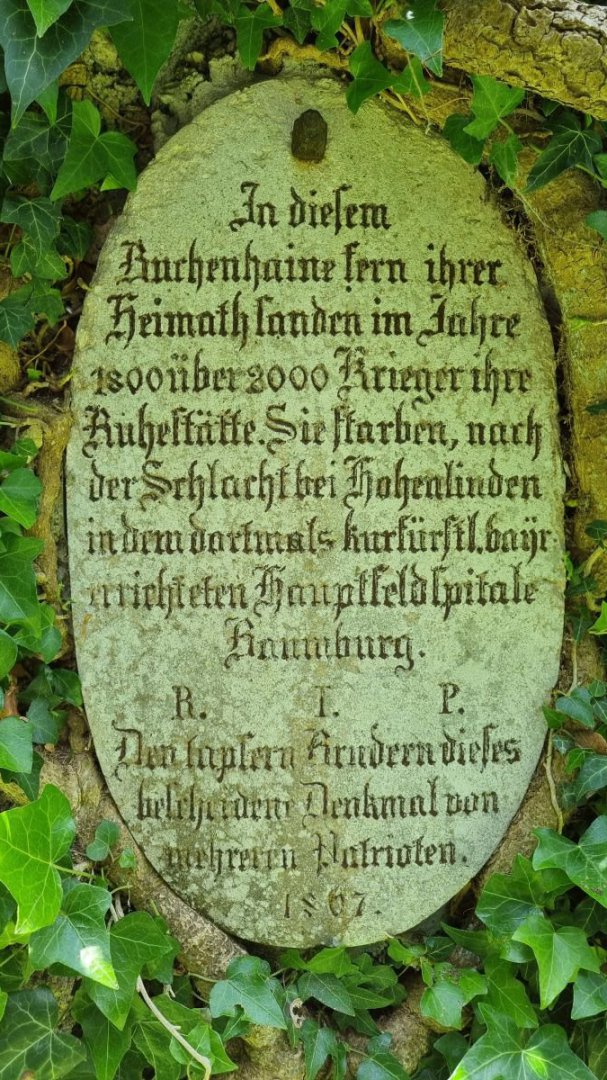 In diesem
Buchenhaine fern ihrer
Heimath fanden im Jahre
1800 über 2000 Krieger ihre
Ruhestätte. Sie starben, nach
der Schlacht bei Hohenlinden
in dem dortmals kurfürstl. bayr
errichteten Hauptfeldspitale
Baumburg.
R. I. P.
Den tapfern Brudern dieses
bescheidene Denkmal von
mehreren Patrioten.
1867.